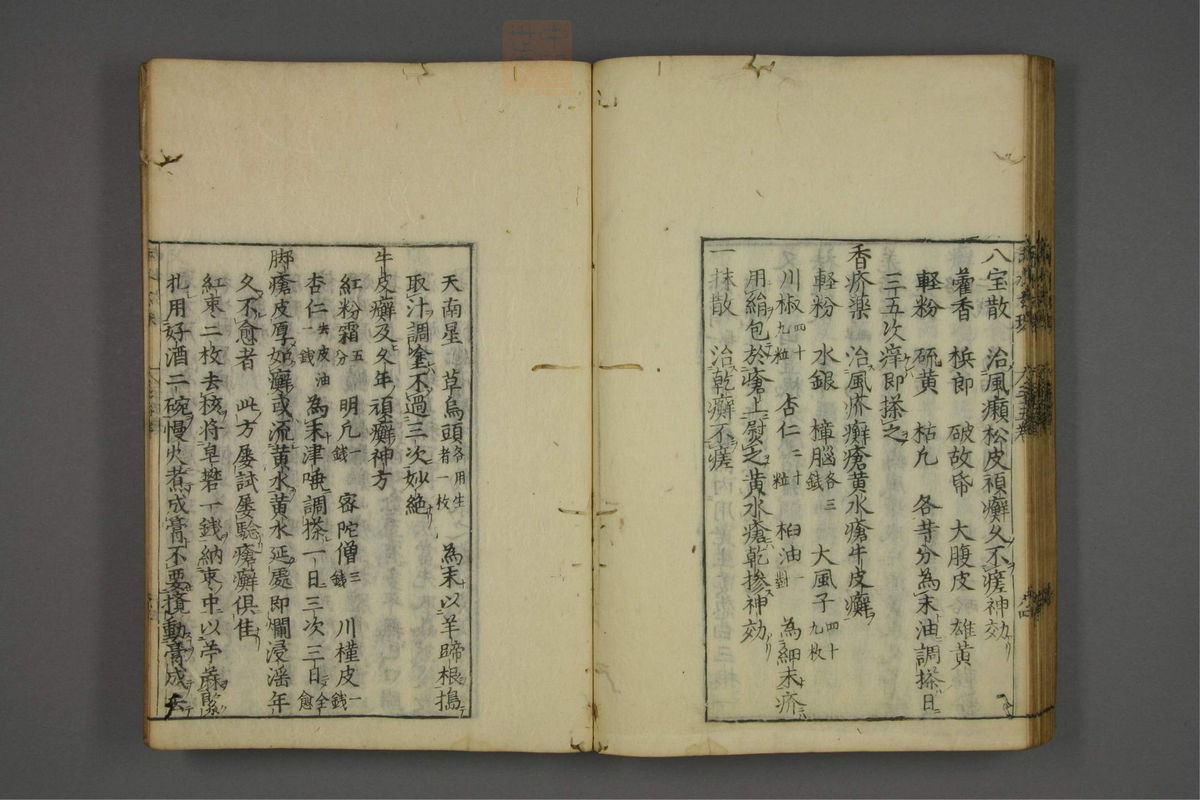 八宝散　治風癩松皮頑癬久不瘥神効
藿香　梹郎　破故帋　大腹皮　雄黄
軽粉　硫黄　枯凢　各等分為末油調搽日
三五次痒即搽之
香疥薬　治風疥癬瘡黄水瘡牛皮癬
軽粉　水銀　樟脳各三銭　大風子四十九枚
川椒四十九粒　杏仁二十粒　桕油一對　為細末疥
用絹包於瘡上熨之黄水瘡乾掺神効
一抹散　治乾癬不瘥
天南星　草烏頭各用生者一枚　為末以羊蹄根搗
取汁調塗不過三次妙絶
牛皮癬及久年頑癬神方
紅粉霜五分　明凢一銭　密陀僧三銭　川槿皮一銭
杏仁去皮油一銭　為末津唾調搽一日三次三日全愈
脚瘡皮厚如癬或流黄水黄水延處即爛浸淫年
久不愈者　此方屡試屡騐瘡癬倶佳
紅枣二枚去核将皂礬一銭納枣中以苧蔴緊
扎用好酒二碗慢火煮成膏不要攪動膏成去